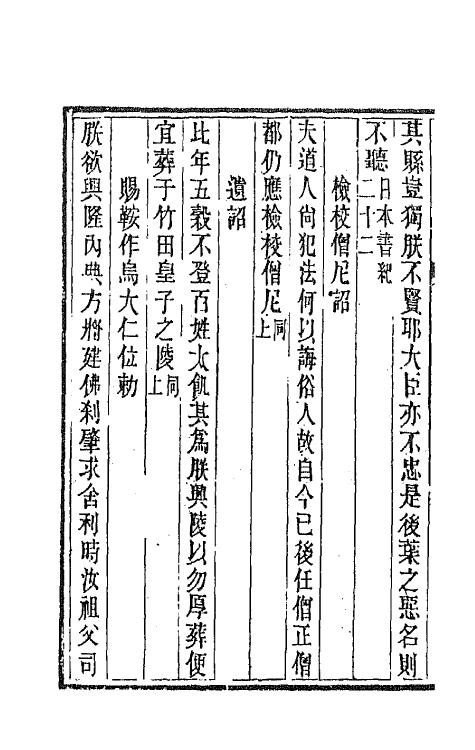 其縣豈獨朕不賢耶大臣亦不忠是後葉之惡名則
不聽日本書紀二十二
檢校僧尼詔
夫道人尙犯法何以誨俗人故自今已後任僧正僧
都仍應檢校僧尼同上
遺詔
比年五穀不登百姓太飢其爲朕興陵以勿厚葬便
宜葬于竹田皇子之陵同上
賜鞍作鳥大仁位勅
朕欲興隆內典方將建佛刹肇求舍利時汝祖父司